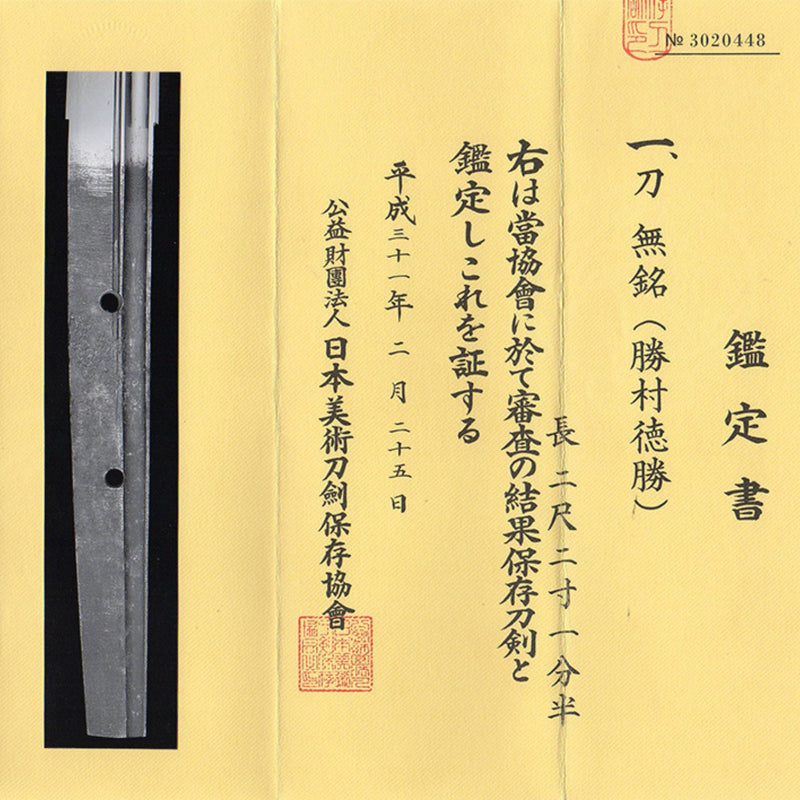 № 3020448
鑑定書
一、刀 無銘(勝村徳勝)
長二尺二寸一分半
右は當協會に於て審査の結果保存刀剣と
鑑定しこれを証する
平成三十一年二月二十五日
公益財團法人 日本美術刀劍保存協會